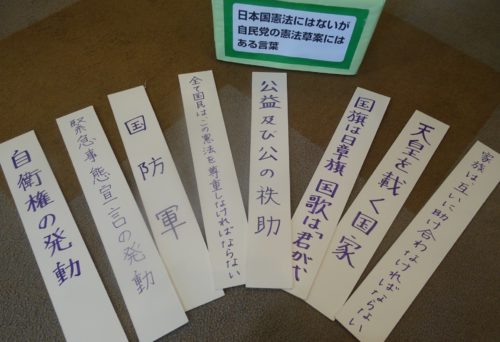 日本国憲法にはないが
自民党の憲法草案には
ある言葉
家族は互いに助け合わなければならない
天皇を載く国家
国旗は日章旗 国歌は「君が代」
公益及び公の秩助
全て国民は、この憲法を尊重しなければならない
国防軍
緊急事態宣言の発動
自衛権の発動